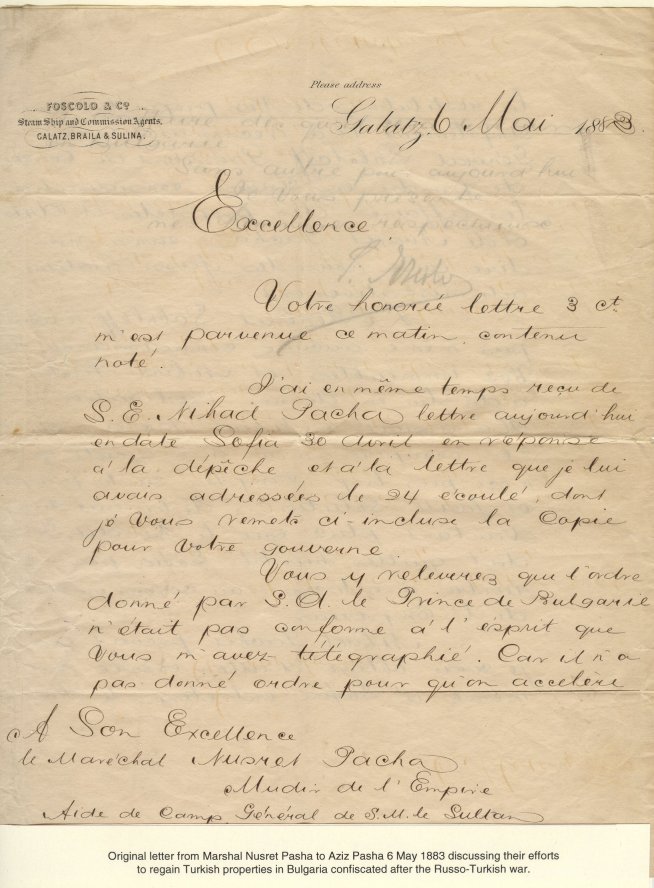 Please address
FOSCOLO & Cº
Steam Ship and Commission Agents,
GALATZ, BRAILA & SULINA.
Galatz, 6 Mai 1883.
Excellence,
Votre honorée lettre 3 ct
m'est parvenue ce matin, contenu
noté.
J'ai en même temps reçu de
S. E. Nihad Pacha lettre aujourd'hui
en date Sofia 30 Avril en réponse
à la dépêche et à la lettre que je lui
avais adressées le 24 écoulé, dont
je vous remets ci-incluse la Copie
pour votre gouverne.
Vous y releverez que l'ordre
donné par S. A. le Prince de Bulgarie
n'était pas conforme à l'esprit que
Vous m'avez télégraphié. Car il n'a
pas donné ordre pour qu'on accelère
A Son Excellence
le Maréchal Nusret Pacha
Mudir de l'Empire
Aide de Camp Général de S. M. le Sultan
Original letter from Marshal Nusret Pasha to Aziz Pasha 6 May 1883 discussing their efforts
to regain Turkish properties in Bulgaria confiscated after the Russo-Turkish war.